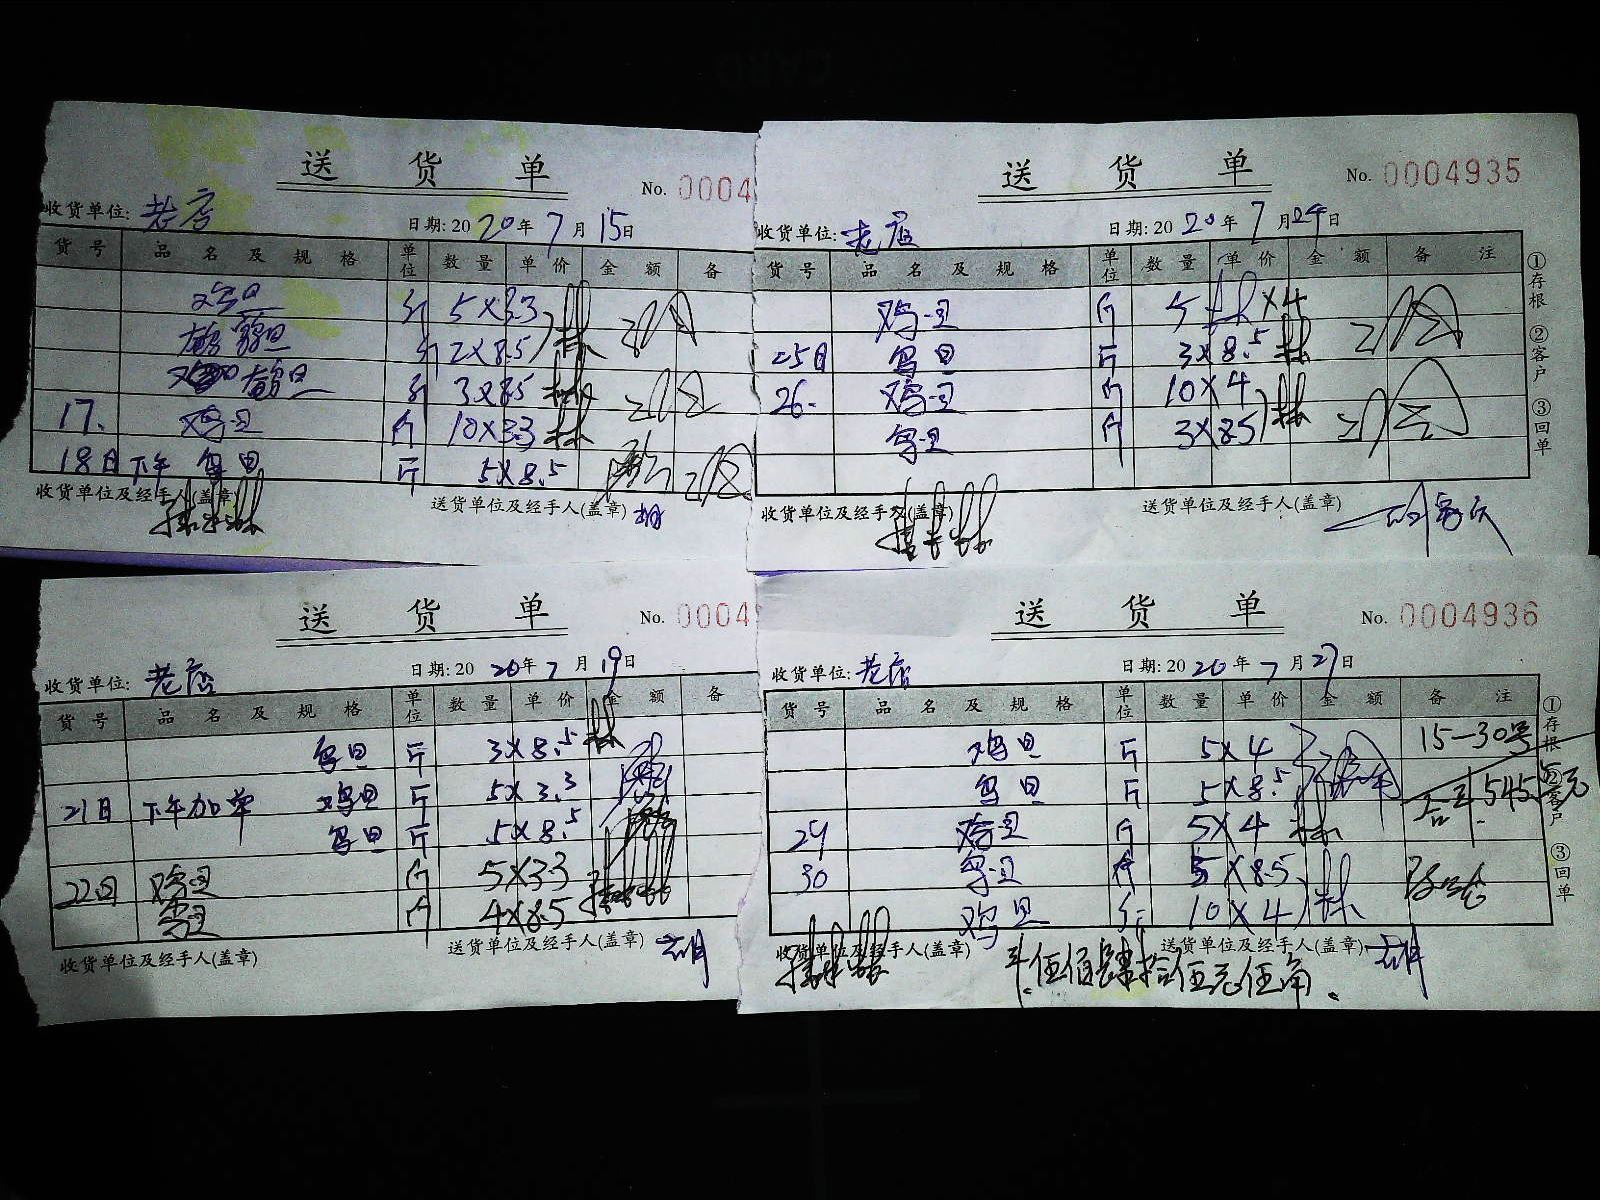 送 货 单
No. 0004
收货单位: 老店 日期: 2020年7月15日
货号 品名及规格 单位 数量 单价 金额 备
鸡旦 斤 5×3.3
鹌鹑旦 斤 2×8.5
鹌旦 斤 3×8.5
17. 鸡旦 斤 10×3.3
18日下午 鸟旦 斤 5×8.5
收货单位及经手人(盖章) 送货单位及经手人(盖章)
送 货 单
No. 0004935
收货单位: 老店 日期: 2020年7月24日
货号 品名及规格 单位 数量 单价 金额 备注
鸡旦 斤 5 ×4
25日 鸟旦 斤 3×8.5
26. 鸡旦 斤 10×4
鸟旦 斤 3×8.5
收货单位及经手人(盖章) 送货单位及经手人(盖章)
①存根 ②客户 ③回单
送 货 单
No. 0004
收货单位: 老店 日期: 2020年7月19日
货号 品名及规格 单位 数量 单价 金额 备
鸟旦 斤 3×8.5
21日 下午加单 鸡旦 斤 5×3.3
鸟旦 斤 5×8.5
22日 鸡旦 斤 5×3.3
鸟旦 斤 4×8.5
收货单位及经手人(盖章) 送货单位及经手人(盖章)
送 货 单
No. 0004936
收货单位: 老店 日期: 2020年7月27日
货号 品名及规格 单位 数量 单价 金额 备注
鸡旦 斤 5×4 15-30号
鸟旦 斤 5×8.5 合计 545.5元
29 鸡旦 斤 5×4
30 鸟旦 斤 5×8.5
鸡旦 斤 10×4
收货单位及经手人(盖章) 送货单位及经手人(盖章)
伍佰肆拾伍元伍角
①存根 ②客户 ③回单